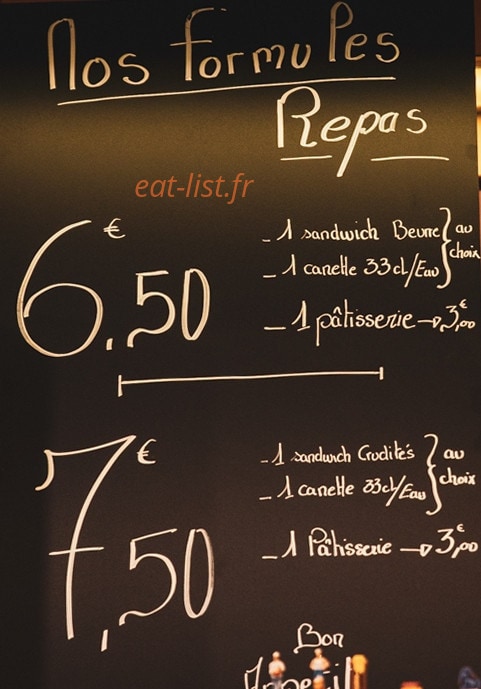 Nos formules
Repas
eat-list.fr
6,50 €
- 1 sandwich Beurre } au choix
- 1 canette 33cl/Eau
- 1 pâtisserie → 3,00 €
7,50 €
- 1 sandwich Crudités } au choix
- 1 canette 33cl/Eau
- 1 Pâtisserie → 3,00 €
Bon